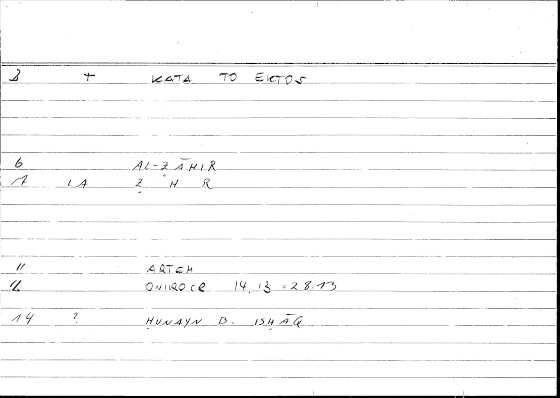 3 + KATA TO EKTOS
6 AL-ẒĀHIR
7 LA Ẓ H R
11 ARTEM
12 ONIROCR 14,13 = 28.13
14 ? ḤUNAYN B. ISḤĀQ